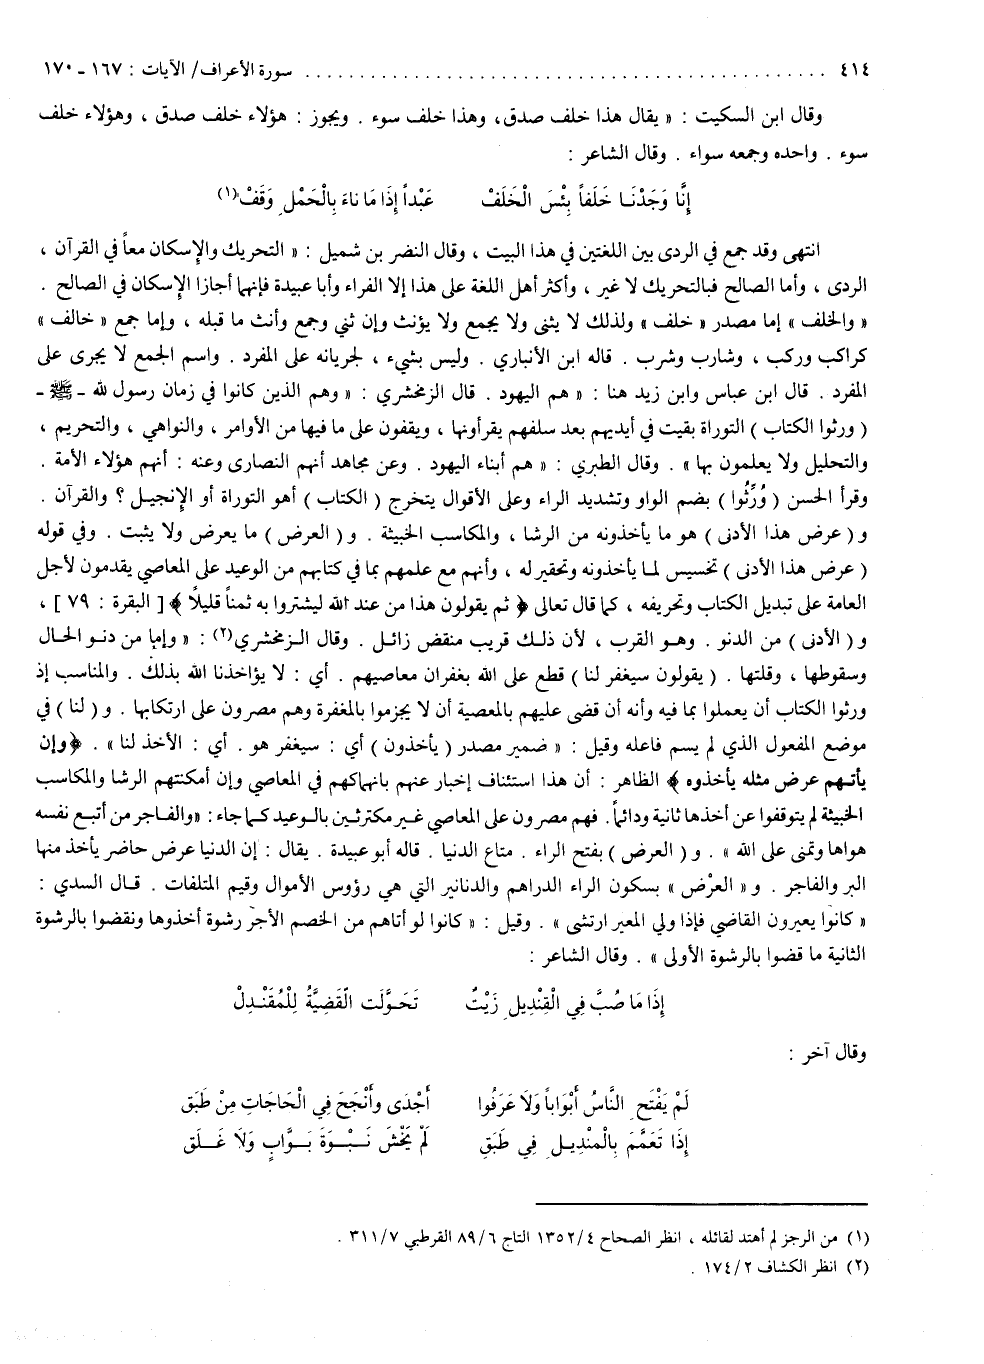 ٤١٤ ............................................... سورة الأعراف/ الآيات : ١٦٧ - ١٧٠
وقال ابن السكيت : « يقال هذا خلف صدق، وهذا خلف سوء . ويجوز : هؤلاء خلف صدق ، وهؤلاء خلف
سوء . واحده وجمعه سواء . وقال الشاعر :
إِنَّا وَجَدْنَا خَلَفاً بِئْسَ الْخَلَفْ عَبْداً إِذَا مَا نَاءَ بِالْحَمْلِ وَقَفْ(١)
انتهى وقد جمع في الردى بين اللغتين في هذا البيت ، وقال النضر بن شميل : « التحريك والإِسكان معاً في القرآن ،
الردى ، وأما الصالح فبالتحريك لا غير ، وأكثر أهل اللغة على هذا إلا الفراء وأبا عبيدة فإنهما أجازا الإِسكان في الصالح .
« والخلف » إما مصدر « خلف » ولذلك لا يثنى ولا يجمع ولا يؤنث وإن ثني وجمع وأنث ما قبله ، وإما جمع « خالف »
كراكب وركب ، وشارب وشرب . قاله ابن الأنباري . وليس بشيء ، لجريانه على المفرد . واسم الجمع لا يجرى على
المفرد . قال ابن عباس وابن زيد هنا : « هم اليهود . قال الزمخشري : « وهم الذين كانوا في زمان رسول لله - ﷺ -
( ورثوا الكتاب ) التوراة بقيت في أيديهم بعد سلفهم يقرأونها ، ويقفون على ما فيها من الأوامر ، والنواهي ، والتحريم ،
والتحليل ولا يعلمون بها » . وقال الطبري : « هم أبناء اليهود . وعن مجاهد أنهم النصارى وعنه : أنهم هؤلاء الأمة .
وقرأ الحسن ( وُرِّثُوا ) بضم الواو وتشديد الراء وعلى الأقوال يتخرج ( الكتاب ) أهو التوراة أو الإِنجيل ؟ والقرآن .
و ( عرض هذا الأدنى ) هو ما يأخذونه من الرشا ، والمكاسب الخبيثة . و ( العرض ) ما يعرض ولا يثبت . وفي قوله
( عرض هذا الأدنى ) تخسيس لما يأخذونه وتحقير له ، وأنهم مع علمهم بما في كتابهم من الوعيد على المعاصي يقدمون لأجل
العامة على تبديل الكتاب وتحريفه ، كما قال تعالى ﴿ ثم يقولون هذا من عند الله ليشتروا به ثمناً قليلاً ﴾ [ البقرة : ٧٩ ] ،
و ( الأدنى ) من الدنو . وهو القرب ، لأن ذلك قريب منقض زائل . وقال الزمخشري(٢) : « وإما من دنو الحال
وسقوطها ، وقلتها . ( يقولون سيغفر لنا ) قطع على الله بغفران معاصيهم . أي : لا يؤاخذنا الله بذلك . والمناسب إذ
ورثوا الكتاب أن يعملوا بما فيه وأنه أن قضى عليهم بالمعصية أن لا يجزموا بالمغفرة وهم مصرون على ارتكابها . و ( لنا ) في
موضع المفعول الذي لم يسم فاعله وقيل : « ضمير مصدر ( يأخذون ) أي : سيغفر هو . أي : الأخذ لنا » . ﴿وإن
يأتهم عرض مثله يأخذوه ﴾ الظاهر : أن هذا استئناف إخبار عنهم بانهماكهم في المعاصي وإن أمكنتهم الرشا والمكاسب
الخبيثة لم يتوقفوا عن أخذها ثانية ودائماً. فهم مصرون على المعاصي غير مكترثين بالوعيد كما جاء : «والفاجر من أتبع نفسه
هواها وتمنى على الله » . و ( العرض ) بفتح الراء . متاع الدنيا . قاله أبو عبيدة . يقال : إن الدنيا عرض حاضر يأخذ منها
البر والفاجر . و « العرْض » بسكون الراء الدراهم والدنانير التي هي رؤوس الأموال وقيم المتلفات . قال السدي :
« كانوا يعيرون القاضي فإذا ولي المعير ارتشى » . وقيل : « كانوا لو أتاهم من الخصم الأجر رشوة أخذوها ونقضوا بالرشوة
الثانية ما قضوا بالرشوة الأولى » . وقال الشاعر :
إِذَا مَا صُبَّ فِي الْقِنْدِيلِ زَيْتٌ تَحَوَّلَت الْقَضِيَّةُ لِلْمُقَنْدِلْ
وقال آخر :
لَمْ يَفْتَحِ النَّاسُ أَبْوَاباً وَلَا عَرَفُوا أَجْدَى وأَنْجَحَ فِي الْحَاجَاتِ مِنْ طَبَقِ
إِذَا تَعَمَّمَ بِالْمِنْدِيلِ فِي طَبَقِ لَمْ يَخْشَ نَبْوَةَ بَوَّابٍ وَلَا غَلَقِ
(١) من الرجز لم أهتد لقائله ، انظر الصحاح ١٣٥٢/٤ التاج ٨٩/٦ القرطبي ٣١١/٧ .
(٢) انظر الكشاف ١٧٤/٢ .